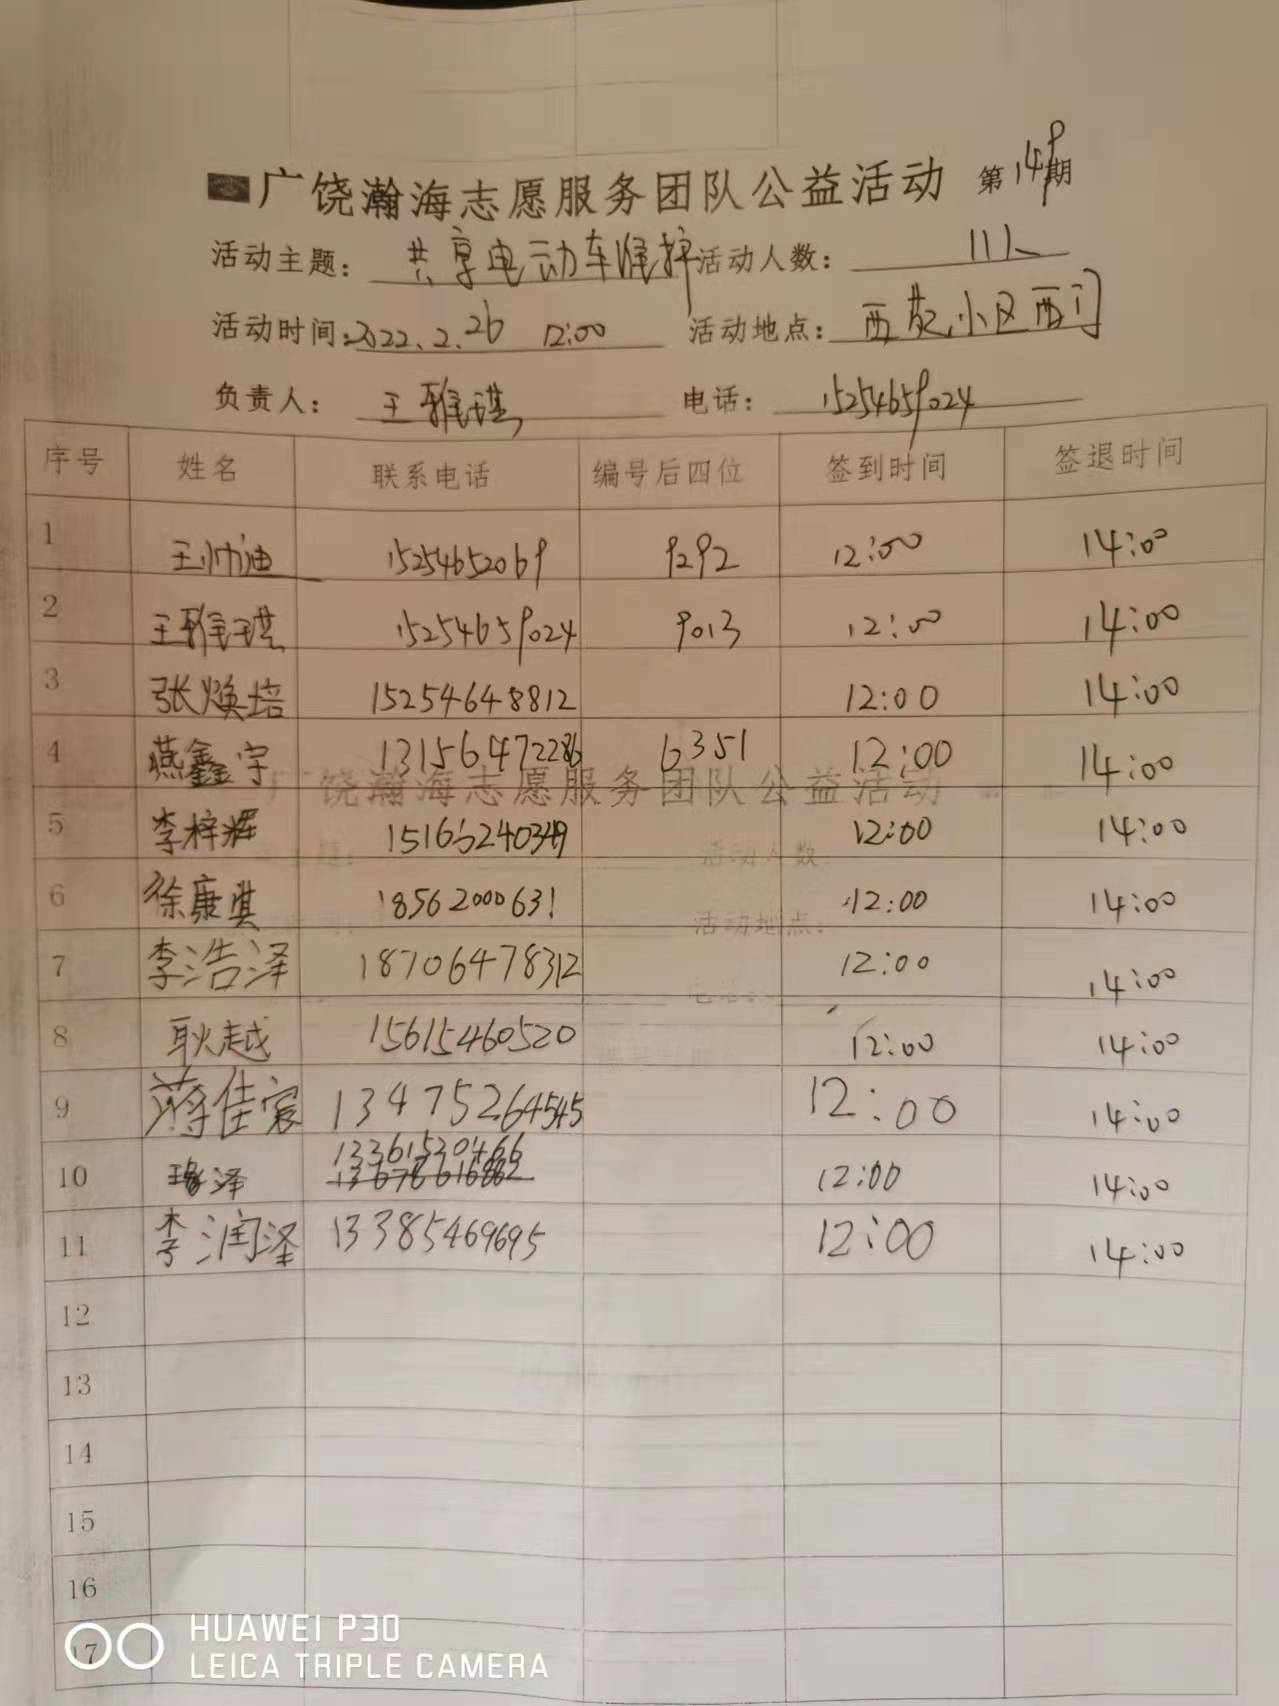 广饶瀚海志愿服务团队公益活动 第149期
活动主题： 共享电动车维护 活动人数： 11人
活动时间：2022.2.26 12:00 活动地点： 西苑小区西门
负责人： 王雅琪 电话： 15254659024
序号 姓名 联系电话 编号后四位 签到时间 签退时间
1 王帅迪 15254652069 9292 12:00 14:00
2 王雅琪 15254659024 9013 12:00 14:00
3 张焕培 15254648812 12:00 14:00
4 燕鑫宇 13156472286 6351 12:00 14:00
广饶瀚海志愿服务团队公益活动
5 李梓辉 15166240349 12:00 14:00
活动人数：
6 徐康淇 18562000631 12:00 14:00
活动地点：
7 李浩泽 18706478312 12:00 14:00
电话：
8 耿越 15615460520 12:00 14:00
9 蒋佳宸 13475264545 12:00 14:00
10 泽 13361530466 12:00 14:00
11 李润泽 13385469695 12:00 14:00
12
13
14
15
16
17
HUAWEI P30
LEICA TRIPLE CAMERA